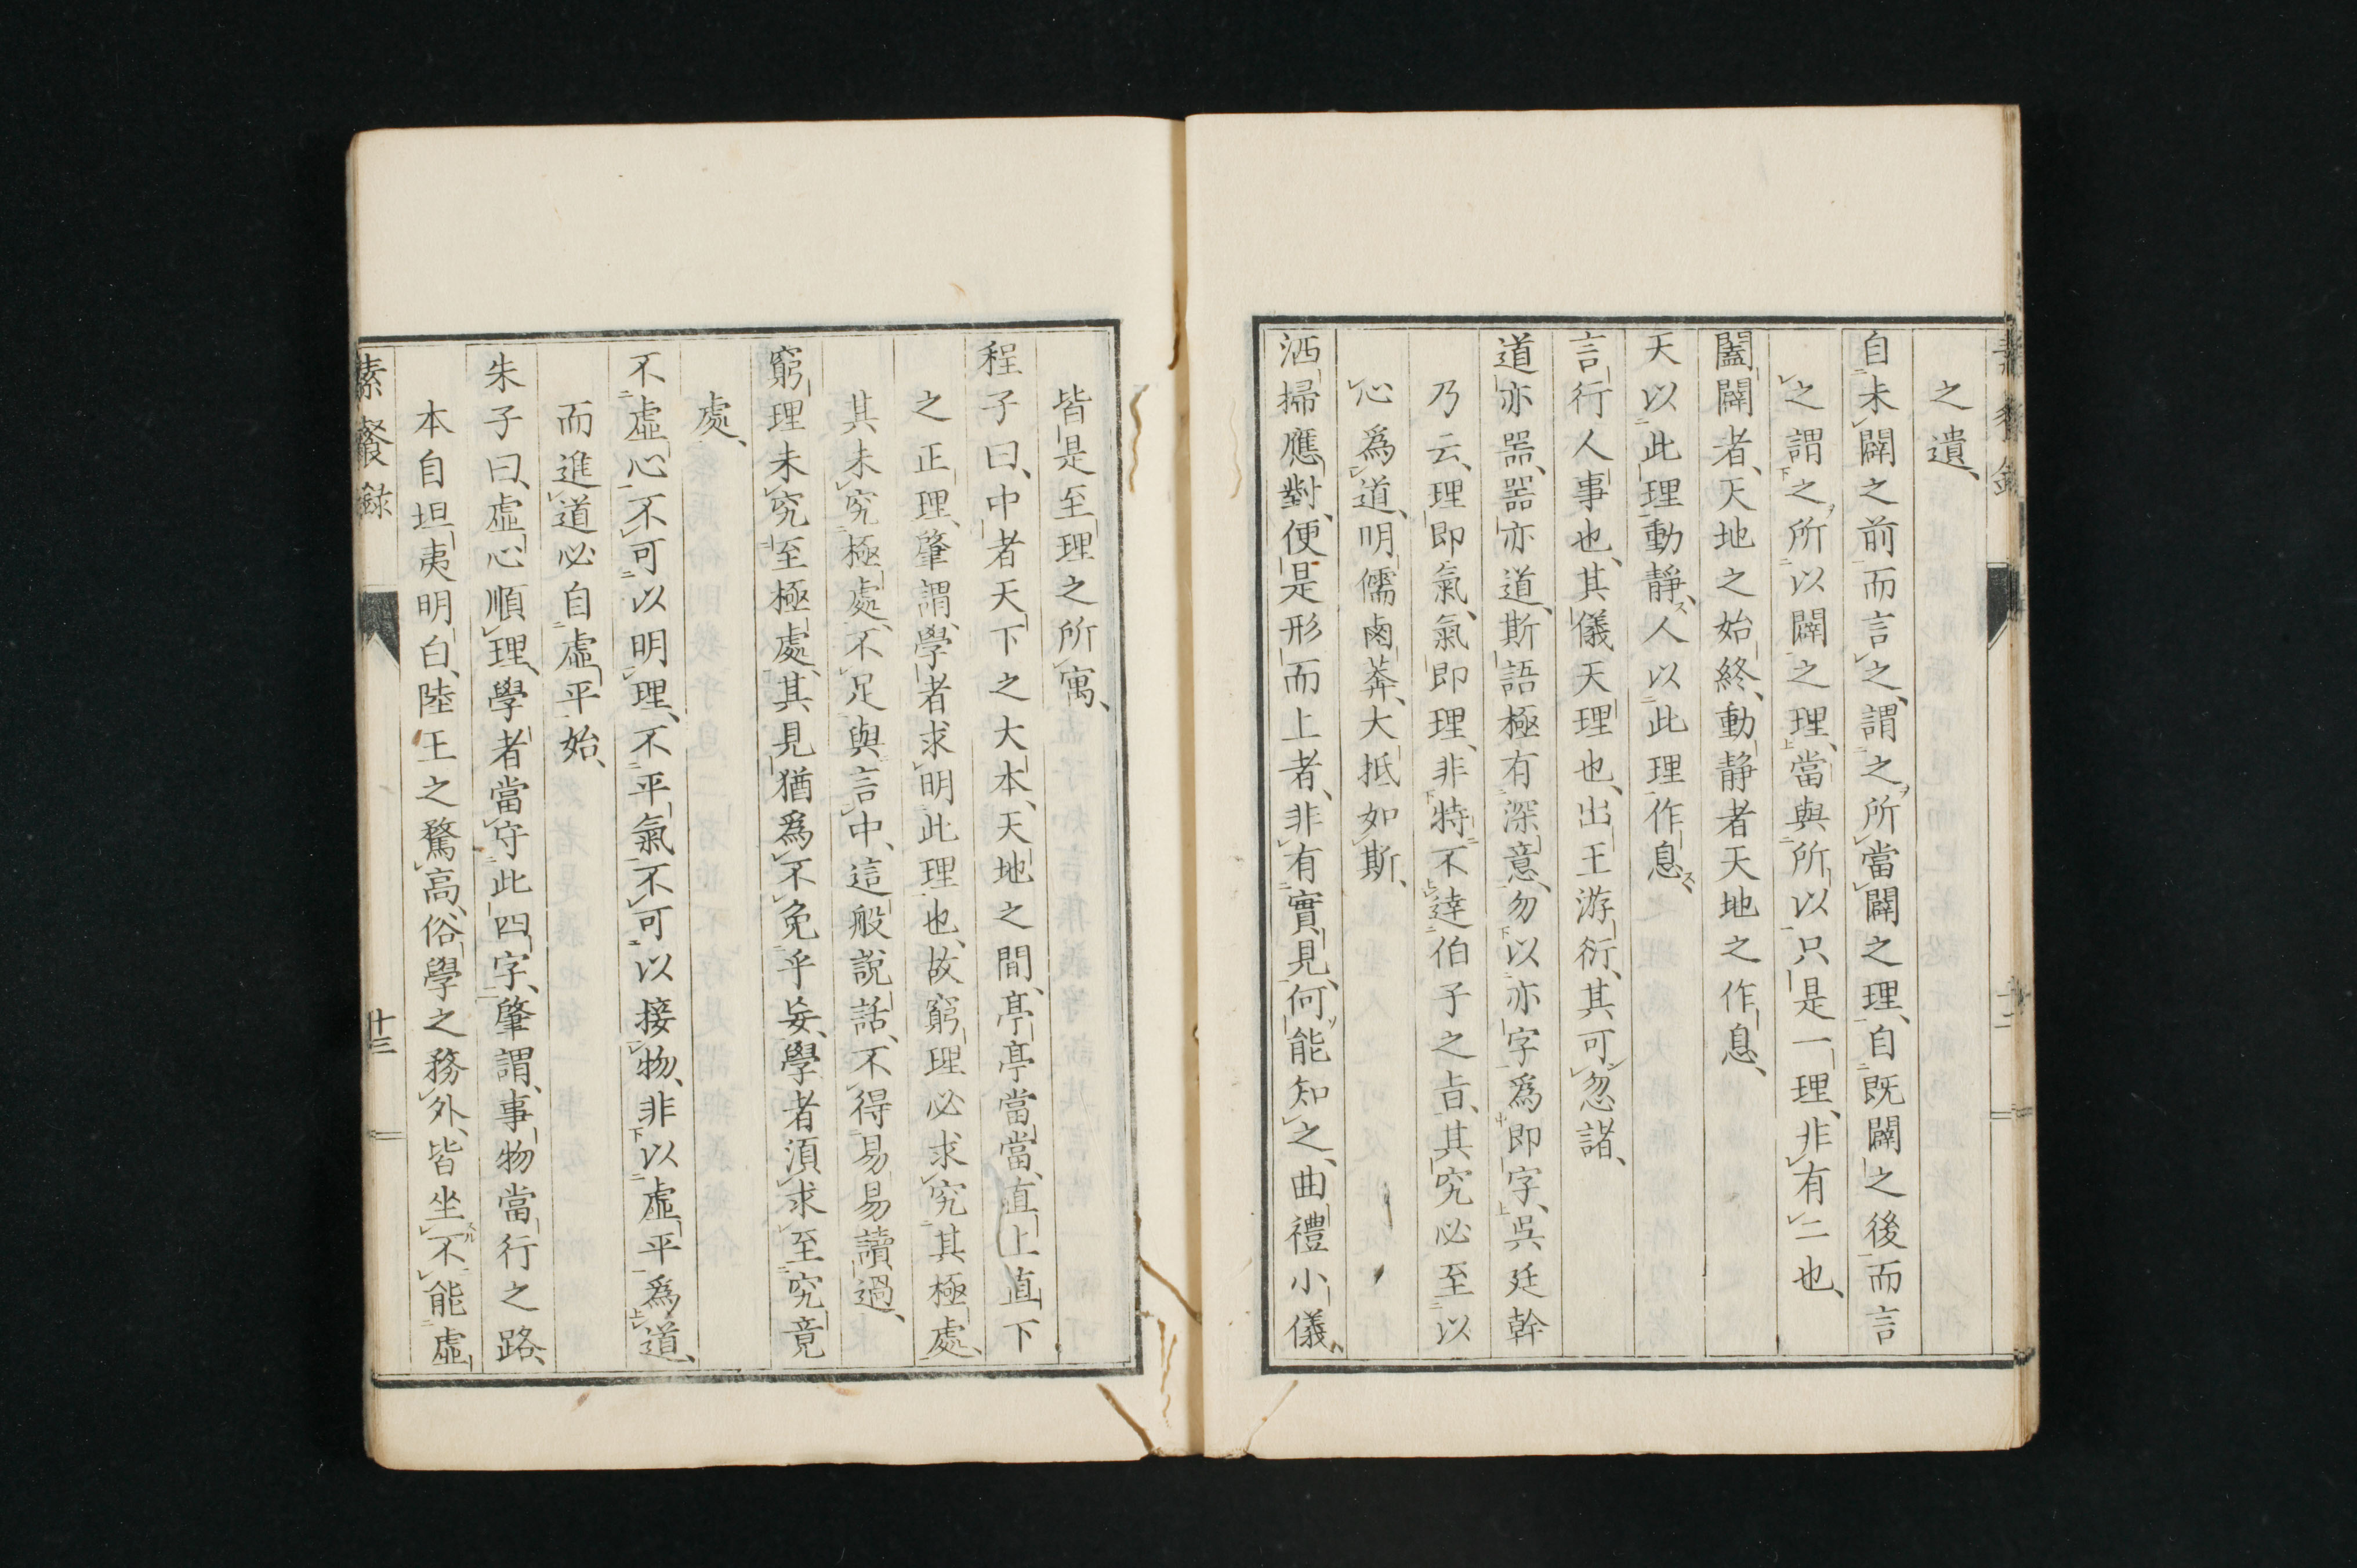 之遺、
自未闢之前而言之、謂之所當闢之理、自既闢之後而言
之謂之所以闢之理、當與所以只是一理、非有二也、
闔闢者、天地之始終、動靜者天地之作息、
天以此理動靜、人以此理作息、
言行人事也、其儀天理也、出王游衍、其可忽諸、
道亦噐、噐亦道、斯語極有深意、勿以亦字爲即字、吳廷幹
乃云、理即氣、氣即理、非特不逹伯子之㫖、其究必至以
心爲道、明儒鹵莽、大抵如斯、
洒掃應對、便是形而上者、非有實見、何能知之、曲禮小儀、
皆是至理之所寓、
程子曰、中者天下之大本、天地之間、亭亭當當、直上直下
之正理、肇謂、學者求明此理也、故窮理必求究其極處、
其未究極處、不足與言中、這般說話、不得易易讀過、
窮理未究至極處、其見猶爲不免乎妄、學者須求至究竟
處、
不虛心不可以明理、不平氣不可以接物、非以虛平爲道、
而進道必自虛平始、
朱子曰、虛心順理、學者當守此四字、肇謂、事物當行之路、
本自坦夷明白、陸王之騖高、俗學之務外、皆坐不能虛
素餐録
十三